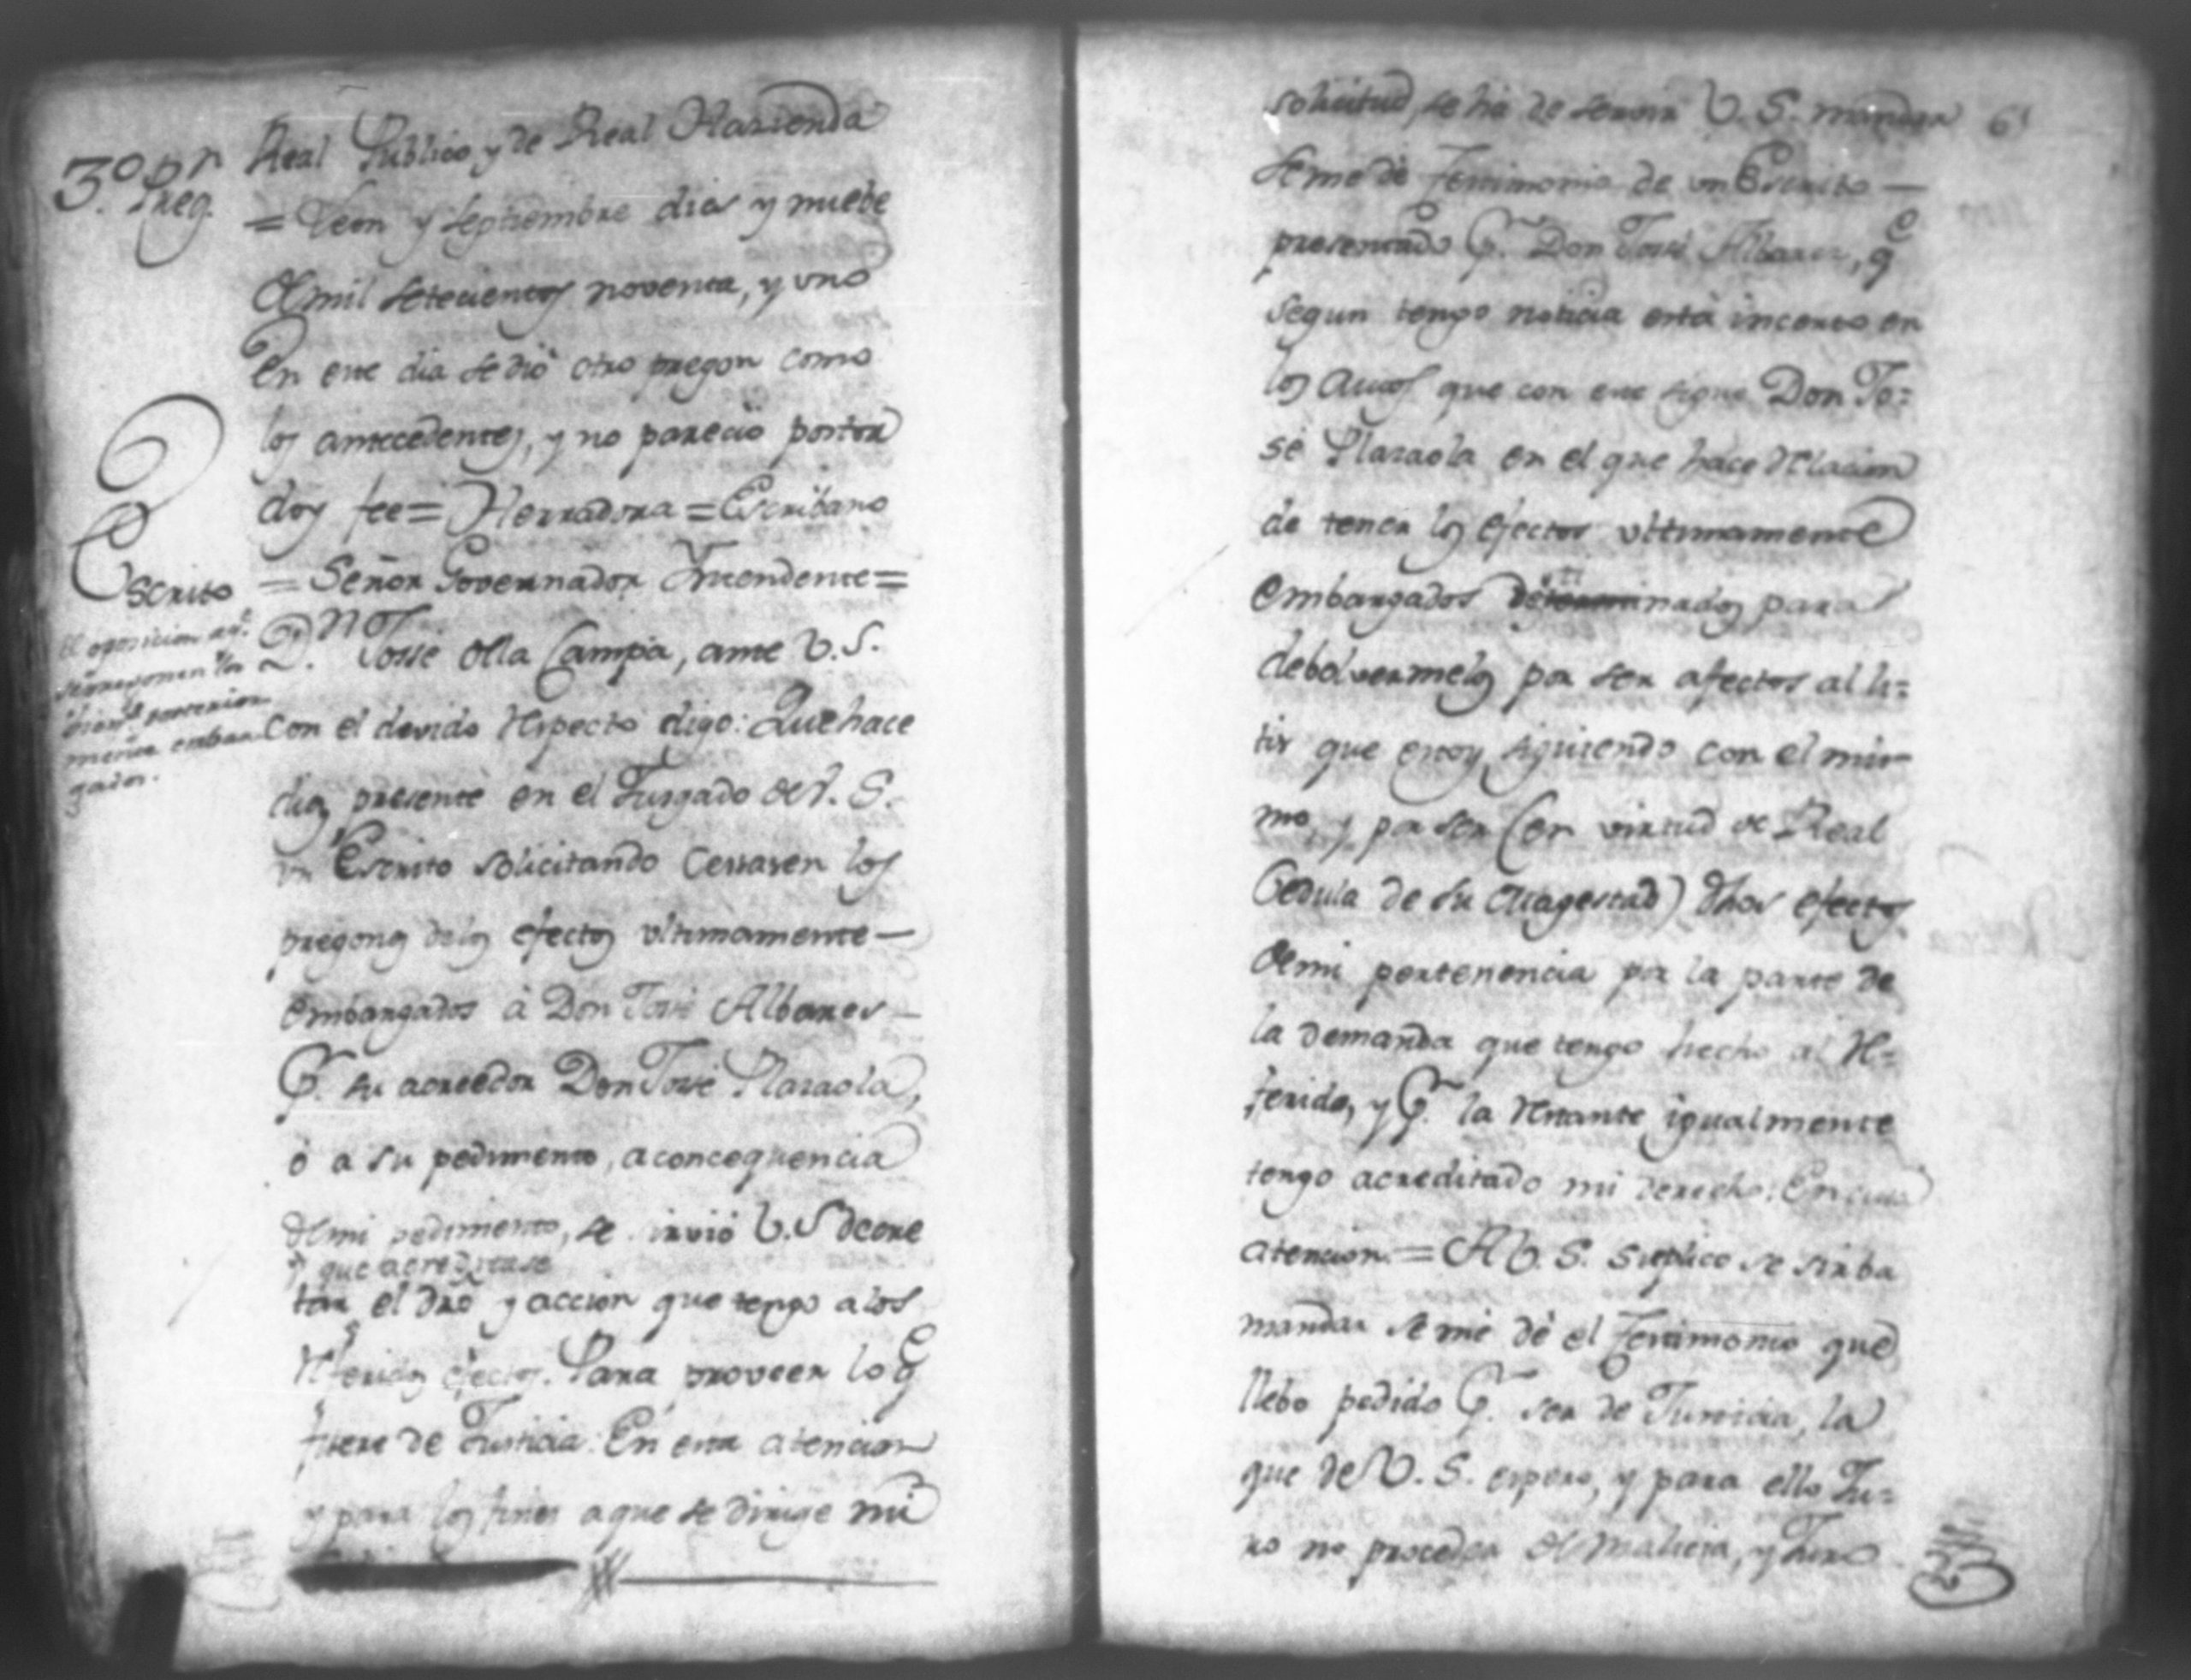 3.º Preg.ⁿ
Real Publico, y de Real Hazienda
= Leon y Septiembre dies y nuebe
de mil setecientos noventa, y uno
En este dia se dió otro pregon como
los antecedentes, y no pareció postor
doy fee = Herradora = Escribano
Escrito
= Señor Governador Intendente =
D.ⁿ José de la Campa, ante V. S.
con el devido respecto digo: Que hace
dias, presenté en el Jusgado de V. S.
un Escrito solicitando cessasen los
pregones de los efectos ultimamente —
embargados à Don José Albares —
P.r su acreedor Don José Plazaola,
ó a su pedimento, a consequencia
de mi pedimento, se sirvió V. S. decre
y que acreditase
tar el dro y accion que tengo a los
referidos efectos. Para proveer lo q.e
fuere de Justicia: En esta atencion
y para los fines a que se dirige mi
oposicion
embar
gados.
solicitud, se há de servir V. S. mandar
se me dé Testimonio de un Escrito —
presentado P.r Don José Albares, q.e
segun tengo noticia está incerto en
los autos que con este sigue Don Jo=
sé Plazaola en el que hace relacion
de tener los efectos ultimamente
embargados para
debolvermelos por ser afectos al li=
tis que estoy siguiendo con el mis-
mo, y por ser (en virtud de Real
Cedula de su Magestad) dhos efectos
de mi pertenencia por la parte de
la demanda que tengo hecho al re=
ferido, y P.r la restante igualmente
tengo acreditado mi derecho: En cuia
atencion = A V. S. suplico se sirba
mandar se me dé el Testimonio que
llebo pedido P.r ser de Justicia, la
que de V. S. espero, y para ello Ju=
ro no proceder de malicia, y Juro